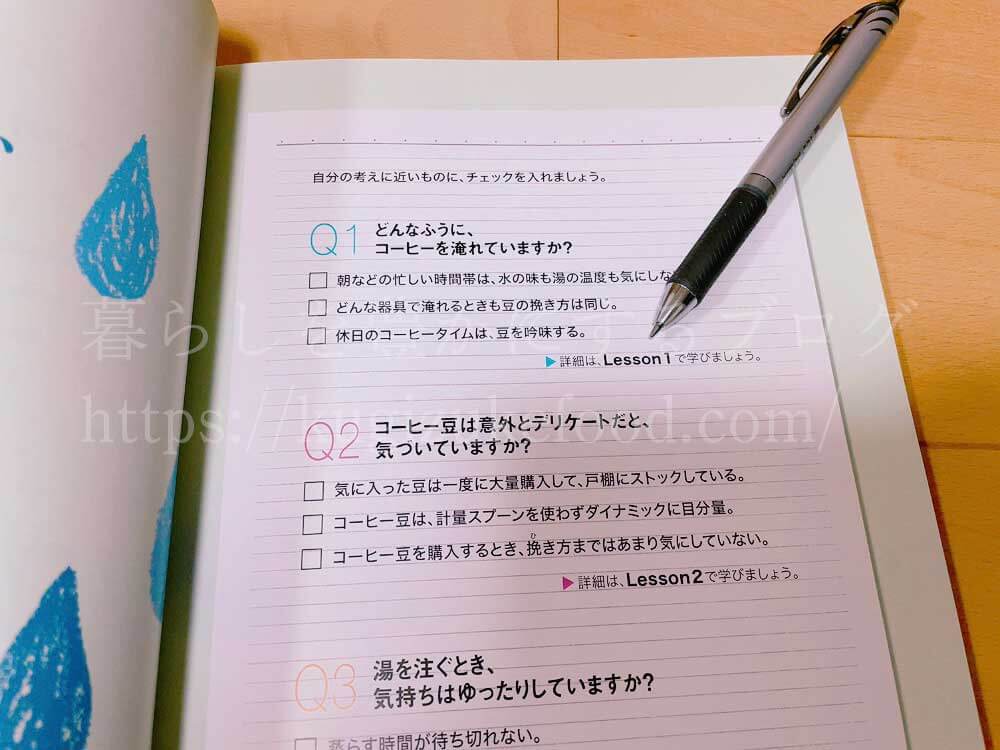 自分の考えに近いものに、チェックを入れましょう。
Q1 どんなふうに、
コーヒーを淹れていますか?
朝などの忙しい時間帯は、水の味も湯の温度も気にしな
どんな器具で淹れるときも豆の挽き方は同じ。
休日のコーヒータイムは、豆を吟味する。
▶詳細は、Lesson1で学びましょう。
Q2 コーヒー豆は意外とデリケートだと、
気づいていますか?
気に入った豆は一度に大量購入して、戸棚にストックしている。
コーヒー豆は、計量スプーンを使わずダイナミックに目分量。
コーヒー豆を購入するとき、挽き方まではあまり気にしていない。
▶詳細は、Lesson2で学びましょう。
Q3 湯を注ぐとき、
気持ちはゆったりしていますか?
蒸らす時間が待ち切れない。
暮らしを豊かにするブログ